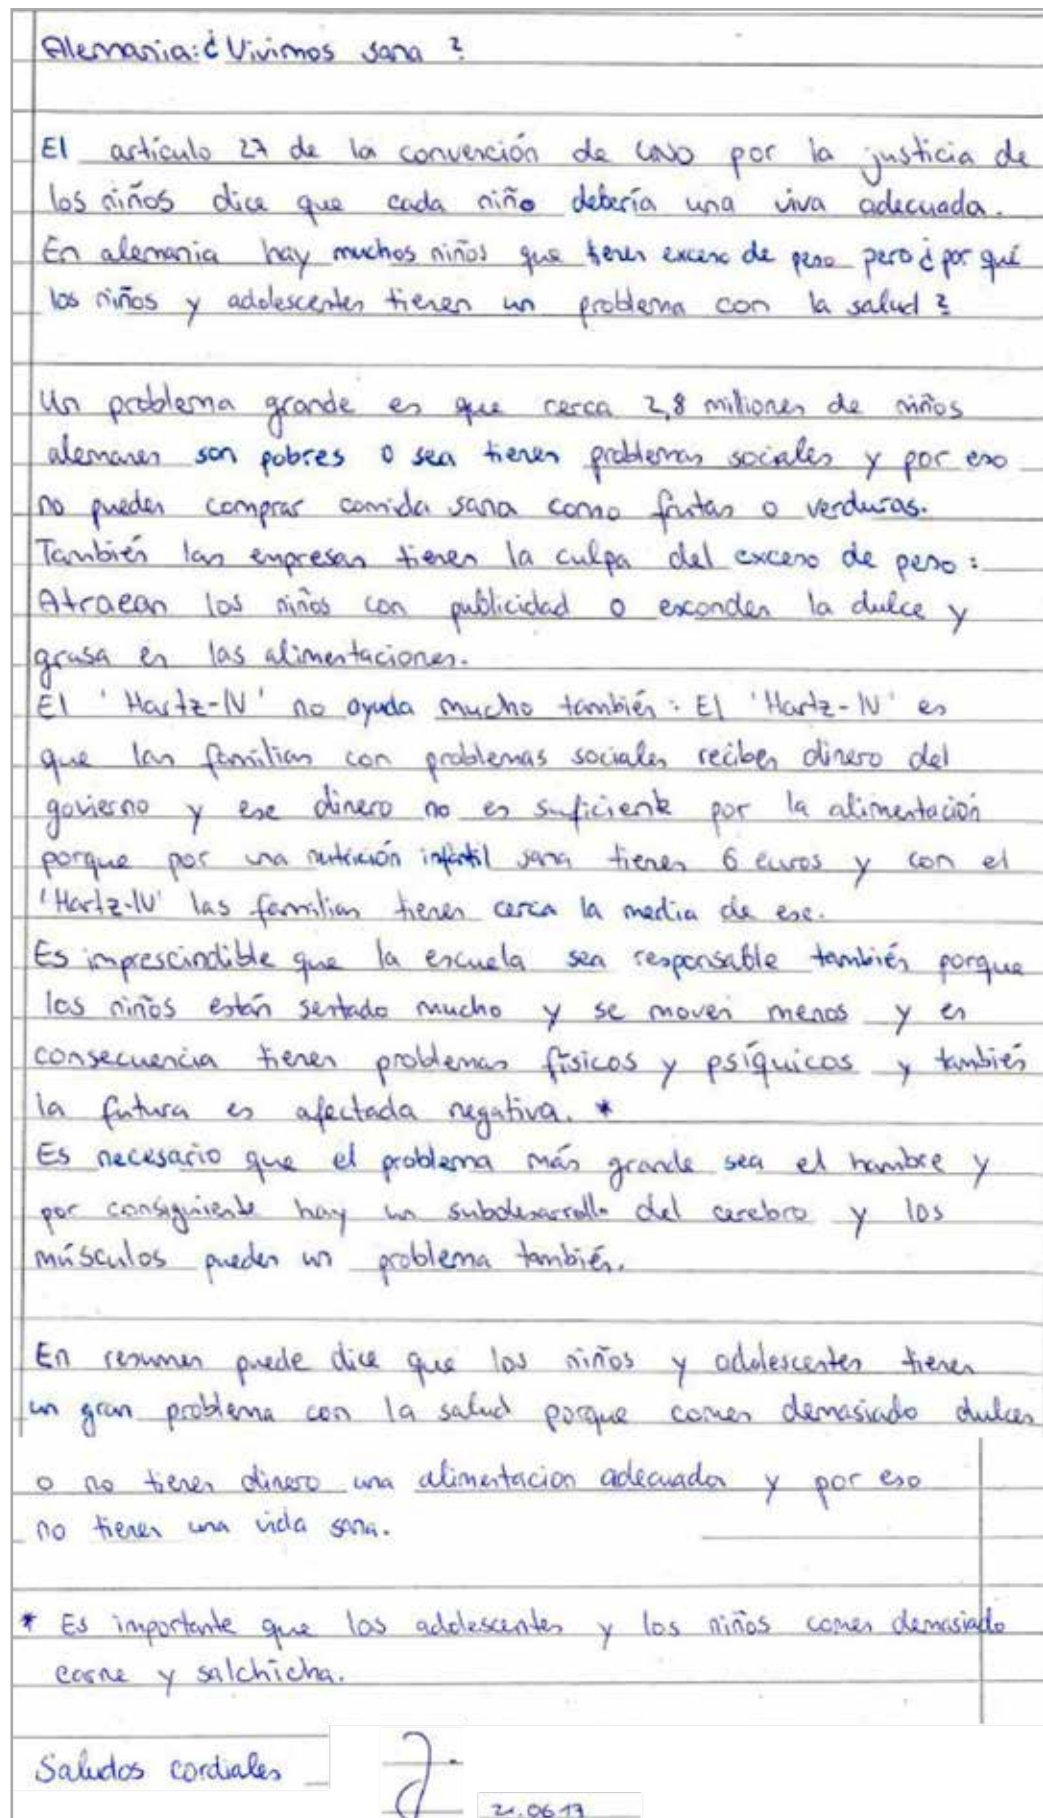 Alemania: ¿Vivimos sana?
El artículo 27 de la convención de UNO por la justicia de
los niños dice que cada niño debería una viva adecuada.
En alemania hay muchos niños que tenen exceso de peso pero ¿por qué
los niños y adolescentes tienen un problema con la salud?
Un problema grande es que cerca 2,8 milliones de niños
alemanes son pobres o sea tienen problemas sociales y por eso
no pueden comprar comida sana como frutas o verduras.
También las empresas tienen la culpa del exceso de peso:
Atraean los niños con publicidad o esconden la dulce y
grasa en las alimentaciones.
El 'Hartz-IV' no ayuda mucho también: El 'Hartz-IV' es
que las familias con problemas sociales reciben dinero del
govierno y ese dinero no es suficiente por la alimentación
porque por una nutrición infantil sana tienen 6 euros y con el
'Hartz-IV' las familias tienen cerca la media de ese.
Es imprescindible que la escuela sea responsable también porque
los niños están sentado mucho y se moven menos y en
consecuencia tienen problemas físicos y psíquicos y también
la futura es afectada negativa. *
Es necesario que el problema más grande sea el hambre y
por consiguiente hay un subdesarrollo del cerebro y los
músculos pueden un problema también.
En resumen puede dice que los niños y adolescentes tienen
un gran problema con la salud porque comen demasiado dulces
o no tienen dinero una alimentacion adecuada y por eso
no tienen una vida sana.
* Es importante que los adolescentes y los niños comen demasiado
carne y salchicha.
Saludos cordiales
21.06.17